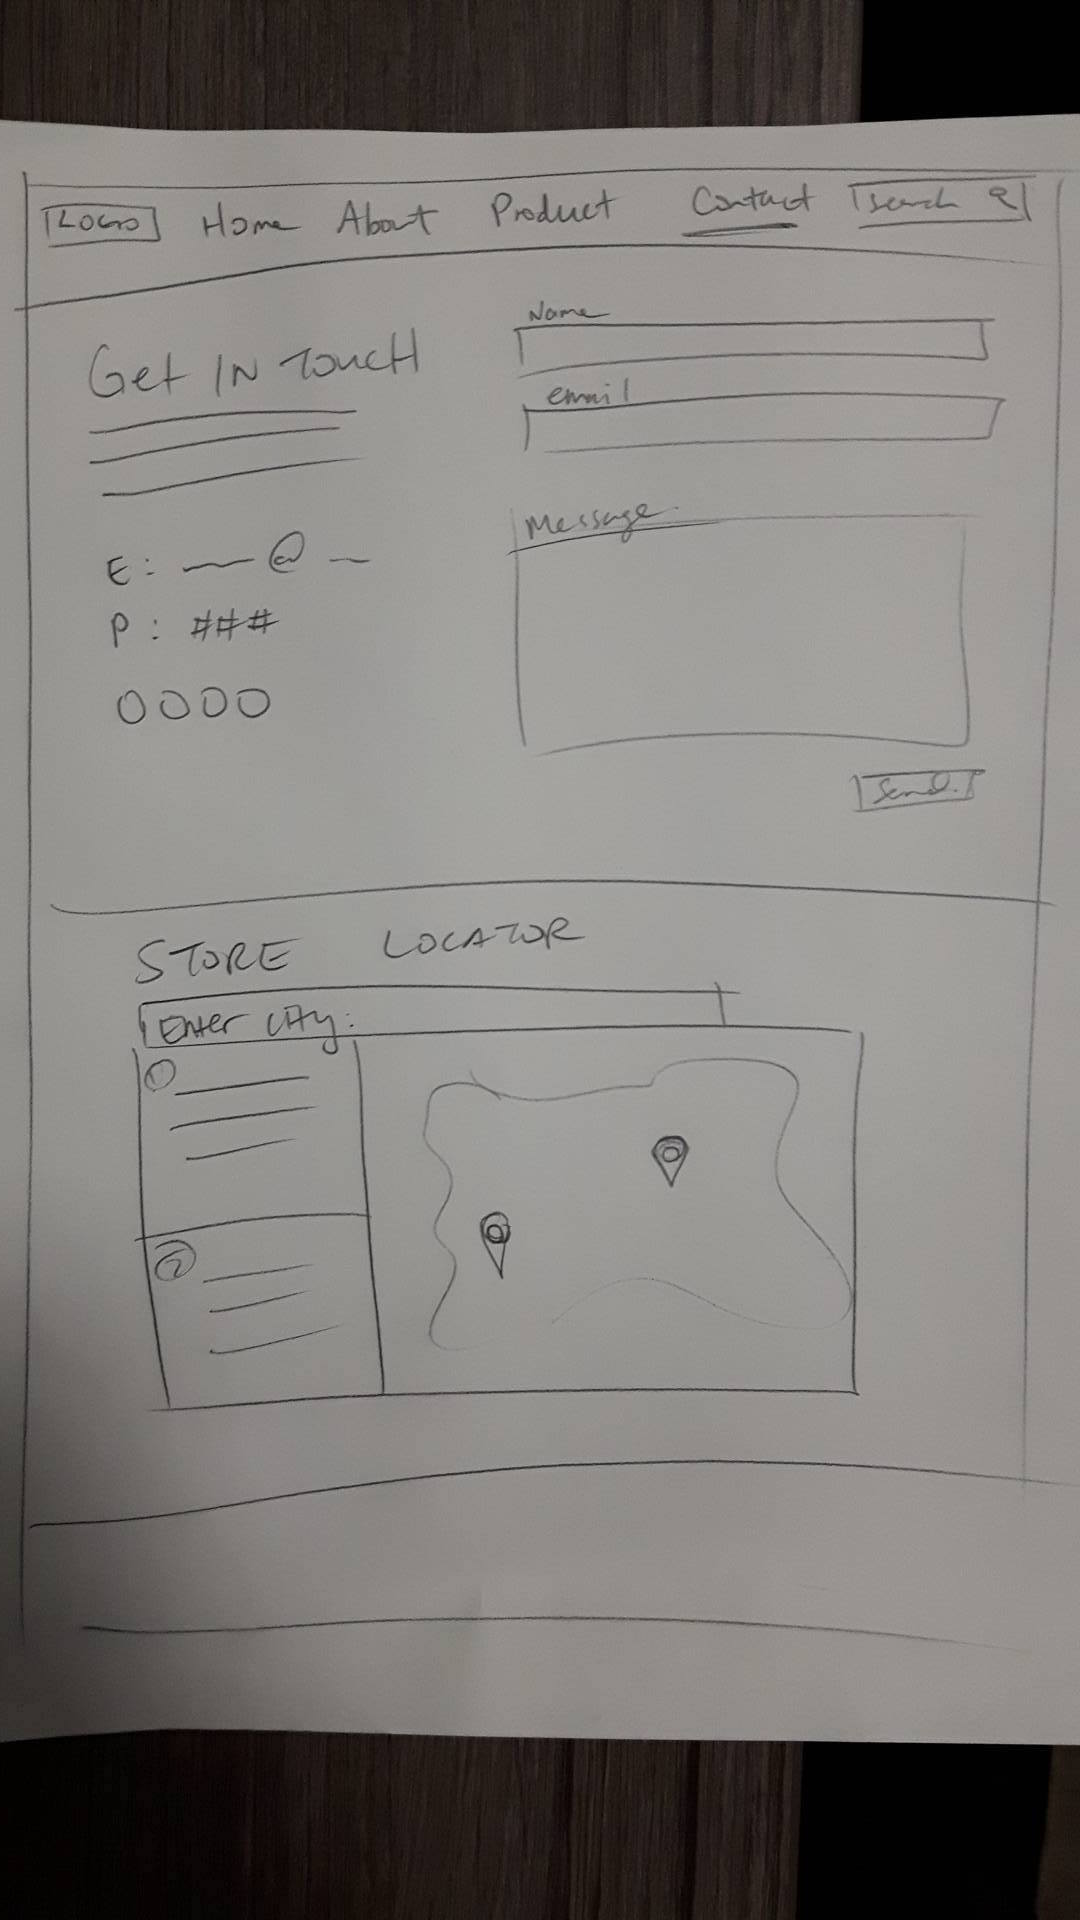 LOGO Home About Product Contact Search
Get IN TOUCH
Name
email
Message
E: @
P: ###
Send
STORE LOCATOR
Enter City:
1
2